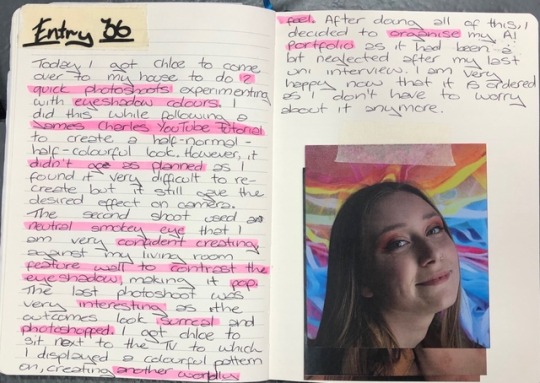 Entry 36
Today I got Chloe to come
over to my house to do 2
quick photoshoots experimenting
with eyeshadow colours. I
did this while following a
James Charles YouTube tutorial
to create a half-normal-
half-colourful look. However, it
didn't go as planned as I
found it very difficult to re-
create but it still gave the
desired effect on camera.
The second shoot used a
neutral smokey eye that I
am very confident creating
against my living room
feature wall to contrast the
eyeshadow, making it pop.
The last photoshoot was
very interesting as the
outcomes look surreal and
photoshopped. I got Chloe to
sit next to the TV to which
I displayed a colourful pattern
on, creating another worldly
feel. After doing all of this, I
decided to organise my A1
portfolio as it had been a
bit neglected after my last
uni interview. I am very
happy now that it is ordered
as I don't have to worry
about it anymore.